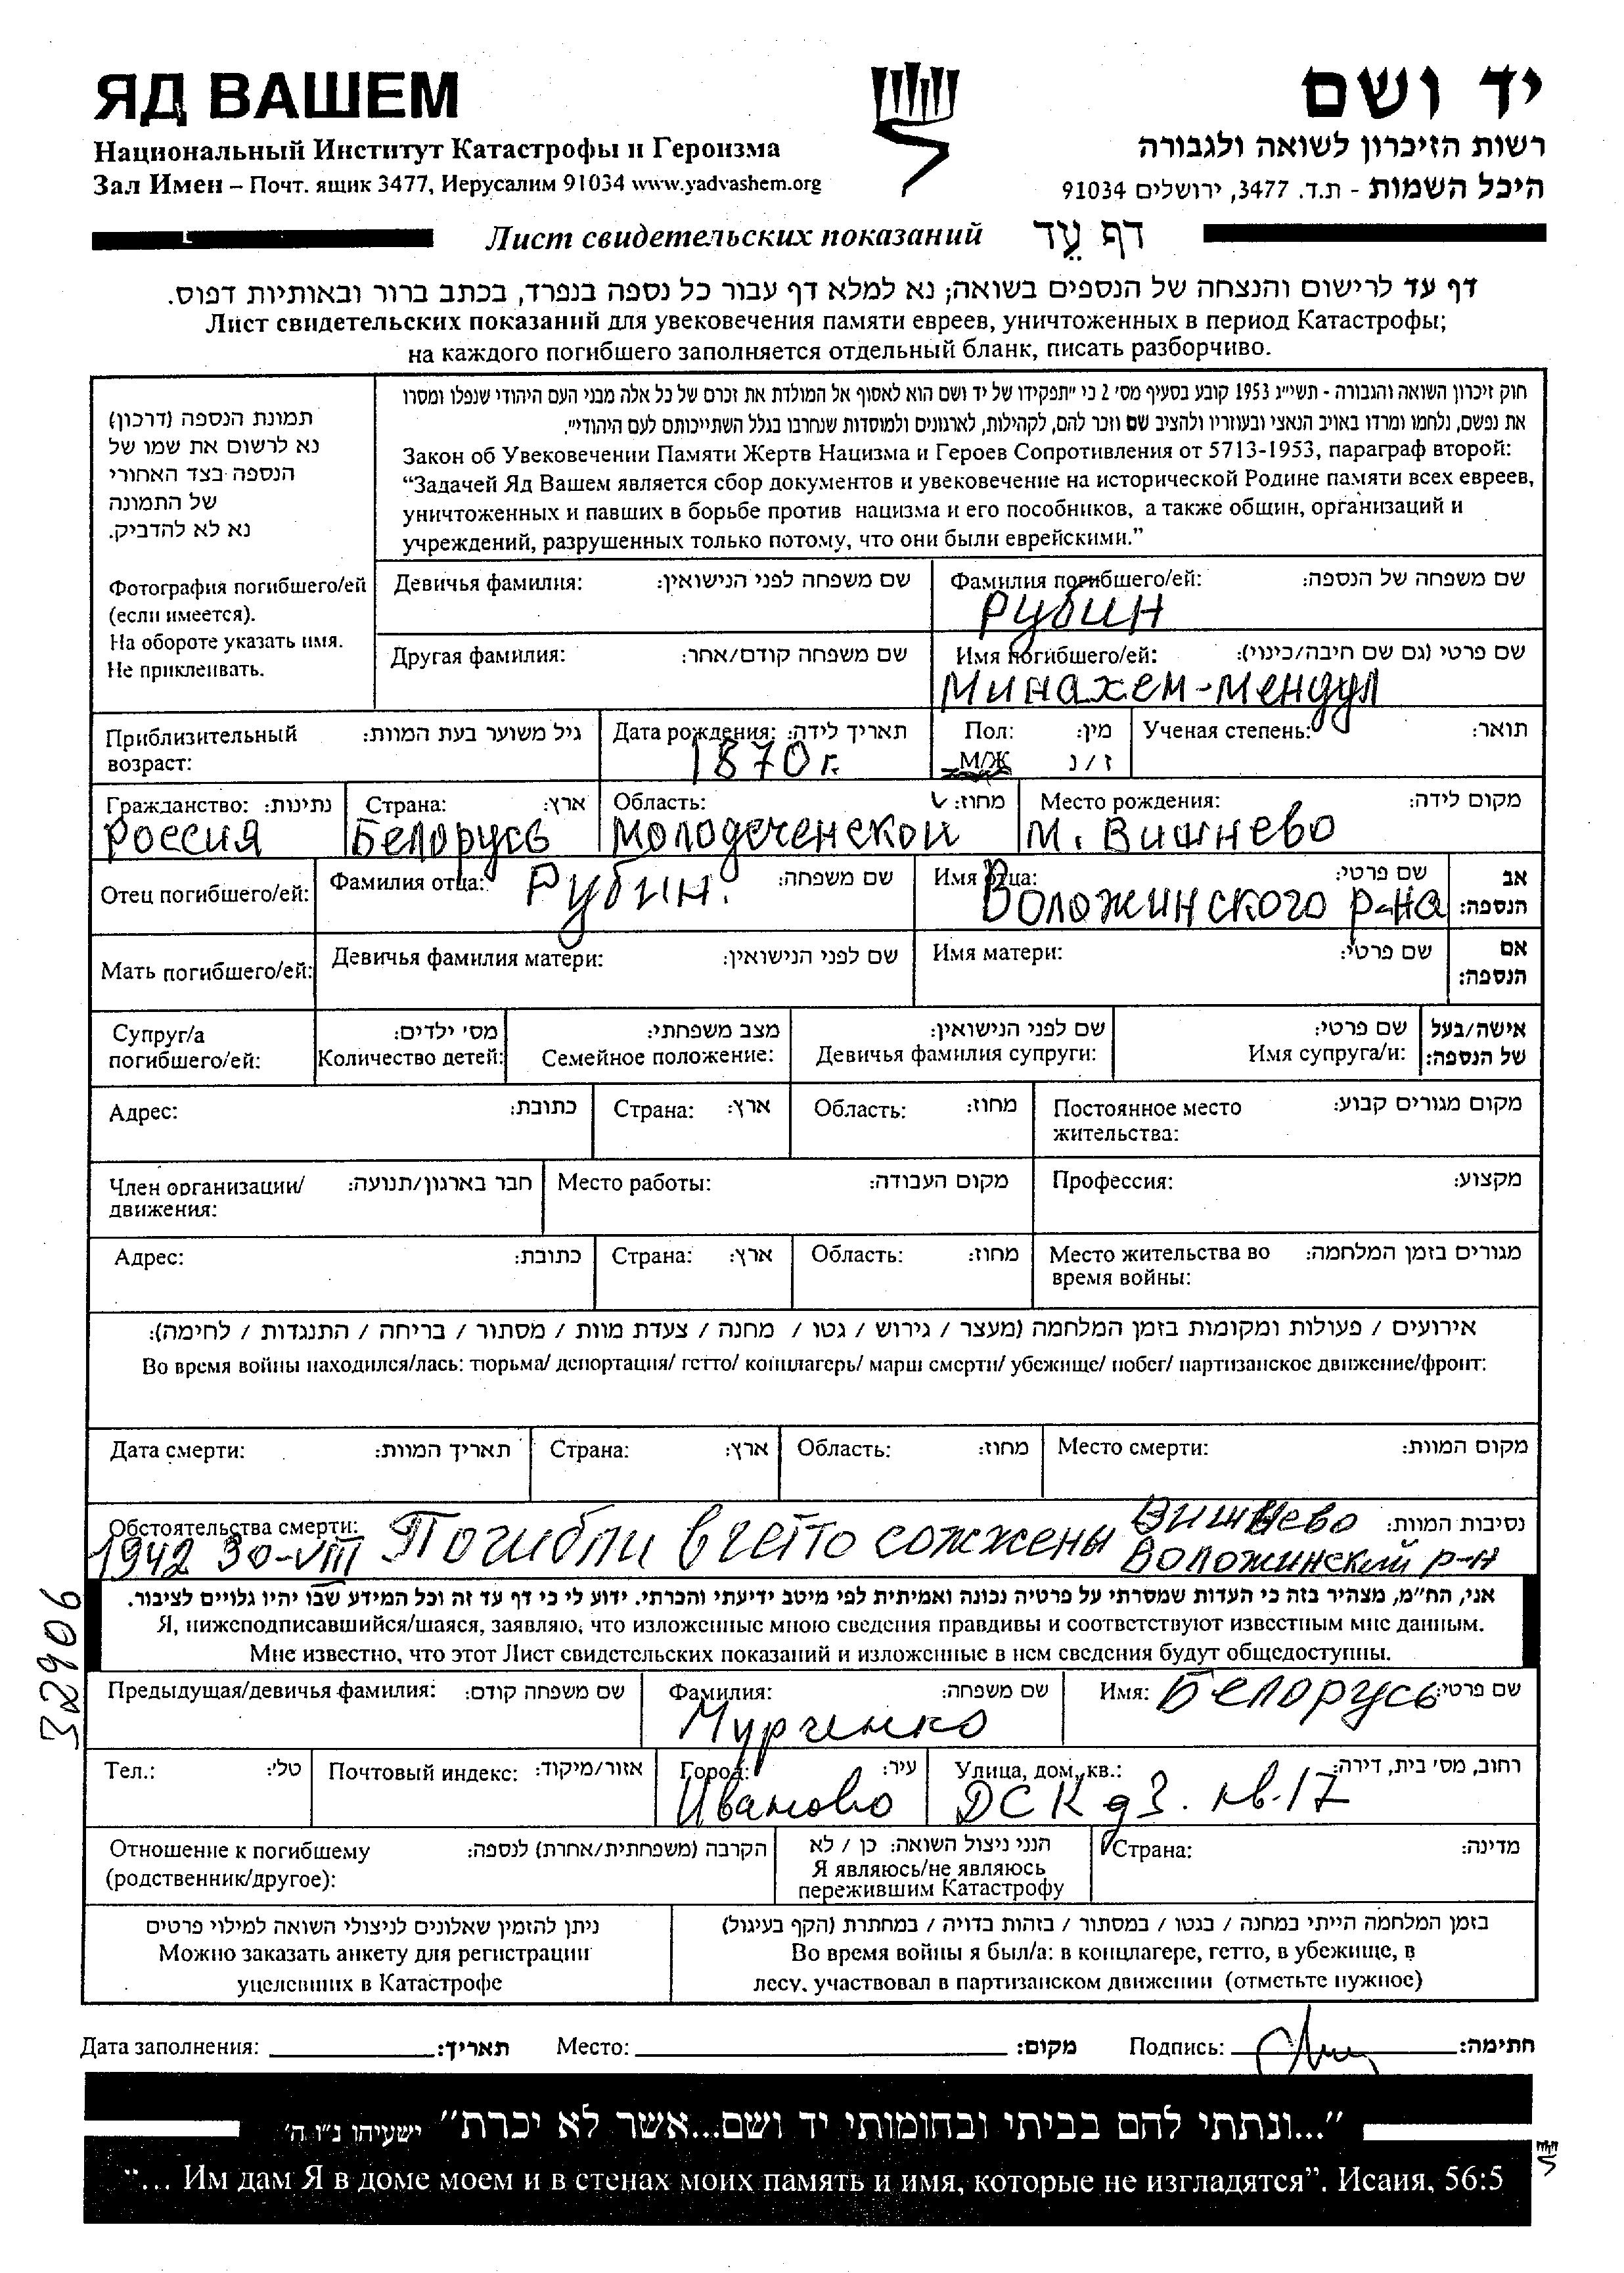 ЯД ВАШЕМ
יד ושם
Национальный Институт Катастрофы и Героизма
רשות הזיכרון לשואה ולגבורה
Зал Имен – Почт. ящик 3477, Иерусалим 91034 www.yadvashem.org
היכל השמות - ת.ד. 3477, ירושלים 91034
Лист свидетельских показаний דף עֵד
דף עד לרישום והנצחה של הנספים בשואה; נא למלא דף עבור כל נספה בנפרד, בכתב ברור ובאותיות דפוס.
Лист свидетельских показаний для увековечения памяти евреев, уничтоженных в период Катастрофы;
на каждого погибшего заполняется отдельный бланк, писать разборчиво.
תמונת הנספה (דרכון)
נא לרשום את שמו של
הנספה בצד האחורי
של התמונה
נא לא להדביק.
Фотография погибшего/ей
(если имеется).
На обороте указать имя.
Не приклеивать.
חוק זיכרון השואה והגבורה - תשי״ג 1953 קובע בסעיף מס׳ 2 כי ״תפקידו של יד ושם הוא לאסוף אל המולדת את זכרם של כל אלה מבני העם היהודי שנפלו ומסרו
את נפשם, נלחמו ומרדו באויב הנאצי ובעוזריו ולהציב שם וזכר להם, לקהילות, לארגונים ולמוסדות שנחרבו בגלל השתייכותם לעם היהודי״.
Закон об Увековечении Памяти Жертв Нацизма и Героев Сопротивления от 5713-1953, параграф второй:
“Задачей Яд Вашем является сбор документов и увековечение на исторической Родине памяти всех евреев,
уничтоженных и павших в борьбе против нацизма и его пособников, а также общин, организаций и
учреждений, разрушенных только потому, что они были еврейскими.”
Девичья фамилия: שם משפחה לפני הנישואין:
Фамилия погибшего/ей: שם משפחה של הנספה:
Рубин
Другая фамилия: שם משפחה קודם/אחר:
Имя погибшего/ей: שם פרטי (גם שם חיבה/כינוי):
Минахем-Мендул
Приблизительный возраст: גיל משוער בעת המוות:
Дата рождения: תאריך לידה:
1870 г.
Пол: מין:
М/Ж ז / נ
Ученая степень: תואר:
Гражданство: נתינות:
Россия
Страна: ארץ:
Белорусь
Область: מחוז:
Молодеченской
Место рождения: מקום לידה:
м. Вишнево
Отец погибшего/ей:
Фамилия отца: שם משפחה:
Рубин.
Имя отца: שם פרטי:
Воложинского р-на
אב הנספה:
Мать погибшего/ей:
Девичья фамилия матери: שם לפני הנישואין:
Имя матери: שם פרטי:
אם הנספה:
Супруг/а погибшего/ей:
מס׳ ילדים: Количество детей:
מצב משפחתי: Семейное положение:
שם לפני הנישואין: Девичья фамилия супруги:
שם פרטי: Имя супруга/и:
אישה/בעל של הנספה:
Адрес: כתובת:
Страна: ארץ:
Область: מחוז:
Постоянное место жительства: מקום מגורים קבוע:
Член организации/ движения: חבר בארגון/תנועה:
Место работы: מקום העבודה:
Профессия: מקצוע:
Адрес: כתובת:
Страна: ארץ:
Область: מחוז:
Место жительства во время войны: מגורים בזמן המלחמה:
אירועים / פעולות ומקומות בזמן המלחמה (מעצר / גירוש / גטו / מחנה / צעדת מוות / מסתור / בריחה / התנגדות / לחימה):
Во время войны находился/лась: тюрьма/ депортация/ гетто/ концлагерь/ марш смерти/ убежище/ побег/ партизанское движение/фронт:
Дата смерти: תאריך המוות:
Страна: ארץ:
Область: מחוז:
Место смерти: מקום המוות:
Обстоятельства смерти: נסיבות המוות:
1942 30-VIII Погибли в гетто сожжены Вишнево
Воложинский р-н
אני, הח״מ, מצהיר בזה כי העדות שמסרתי על פרטיה נכונה ואמיתית לפי מיטב ידיעתי והכרתי. ידוע לי כי דף עד זה וכל המידע שבו יהיו גלויים לציבור.
Я, нижеподписавшийся/шаяся, заявляю, что изложенные мною сведения правдивы и соответствуют известным мне данным.
Мне известно, что этот Лист свидетельских показаний и изложенные в нем сведения будут общедоступны.
32906
Предыдущая/девичья фамилия: שם משפחה קודם:
Фамилия: שם משפחה:
Мурченко
Имя: שם פרטי:
Белорусь
Тел.: טל׳:
Почтовый индекс: אזור/מיקוד:
Город: עיר:
Иваново
Улица, дом, кв.: רחוב, מס׳ בית, דירה:
ДСК д 3. кв. 17
Отношение к погибшему (родственник/другое): הקרבה (משפחתית/אחרת) לנספה:
הנני ניצול השואה: כן / לא
Я являюсь/не являюсь
пережившим Катастрофу
Страна: מדינה:
ניתן להזמין שאלונים לניצולי השואה למילוי פרטים
Можно заказать анкету для регистрации
уцелевших в Катастрофе
בזמן המלחמה הייתי במחנה / בגטו / במסתור / בזהות בדויה / במחתרת (הקף בעיגול)
Во время войны я был/а: в концлагере, гетто, в убежище, в
лесу, участвовал в партизанском движении (отметьте нужное)
Дата заполнения: תאריך: Место: מקום: Подпись: חתימה:
״...ונתתי להם בביתי ובחומותי יד ושם...אשר לא יכרת״ ישעיהו נ״ו ה׳
“... Им дам Я в доме моем и в стенах моих память и имя, которые не изгладятся”. Исаия, 56:5